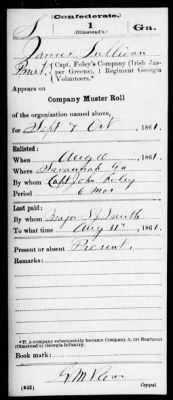 Confederate.
S 1 Ga.
(Olmstead's)
James Sullivan
Pvt., Capt. Foley's Company (Irish Jas-
per Greens), 1 Regiment Georgia
Volunteers.*
Appears on
Company Muster Roll
of the organization named above,
for Sept & Oct, 1861.
Enlisted:
When Aug 10, 1861.
Where Savannah Ga
By whom Capt John Foley
Period 6 mos
Last paid:
By whom Major Smith
To what time Aug 31st, 1861.
Present or absent Present.
Remarks:
*This company subsequently became Company A, 1st Regiment
(Olmstead's) Georgia Infantry.
Book mark:
(642) Copyist.